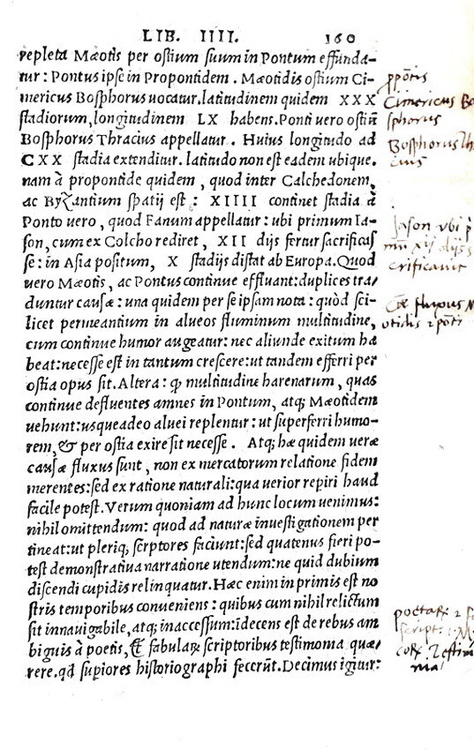 LIB. IIII. 160
repleta Mæotis per ostium suum in Pontum effunda-
tur: Pontus ipse in Propontidem. Mæotidis ostium Ci-
mericus Bosphorus uocatur. latitudinem quidem XXX
stadiorum, longitudinem LX habens. Ponti uero ostiũ
Bosphorus Thracius appellatur. Huius longitudo ad
CXX stadia extenditur. latitudo non est eadem ubique.
nam à propontide quidem, quod inter Calchedonem,
ac Byzantium spatij est: XIIII continet stadia à
Ponto uero, quod Fanum appellatur: ubi primum Ia-
son, cum ex Colcho rediret, XII dijs fertur sacrificas
se: in Asia positum, X stadijs distat ab Europa. Quod
uero Mæotis, ac Pontus continue effluant: duplices tra/
duntur causæ: una quidem per se ipsam nota: quòd sci-
licet permeantium in alueos fluminum multitudine,
cum continue humor augeatur: nec aliunde exitum ha
beat: necesse est in tantum crescere: ut tandem efferri per
ostia opus sit. Altera: ꝙ multitudine harenarum, quas
continue defluentes amnes in Pontum, atq; Mæotidem
uehunt: usqueadeo aluei replentur: ut superferri humo-
rem, & per ostia exire sit necesse. Atq; hæ quidem ueræ
causæ fluxus sunt, non ex mercatorum relatione fidem
merentes: sed ex ratione naturali: qua uerior repiri haud
facile potest. Verum quoniam ad hunc locum uenimus:
nihil omittendum: quod ad naturæ inuestigationem per
tineat: ut pleriq; scrptores faciunt: sed quatenus fieri po-
test demonstratiua narratione utendum: ne quid dubium
discendi cupidis relinquatur. Hæc enim in primis est no
stris temporibus conueniens: quibus cum nihil relictum
sit innauigabile, atq; inaccessum: idecens est de rebus am
biguis à poetis, & fabularꝝ scriptoribus testimonia quæ/
rere. qđ supiores historiographi fecerũt. Decimus igitur:
ppõtis
Cimericus Bo
sphorus
Bosphorus Th
cius
Jason ubi p
mũ xij dijs s
crificauit
fluxus M
otidis & põti
poetaꝝ & f
script:
mia